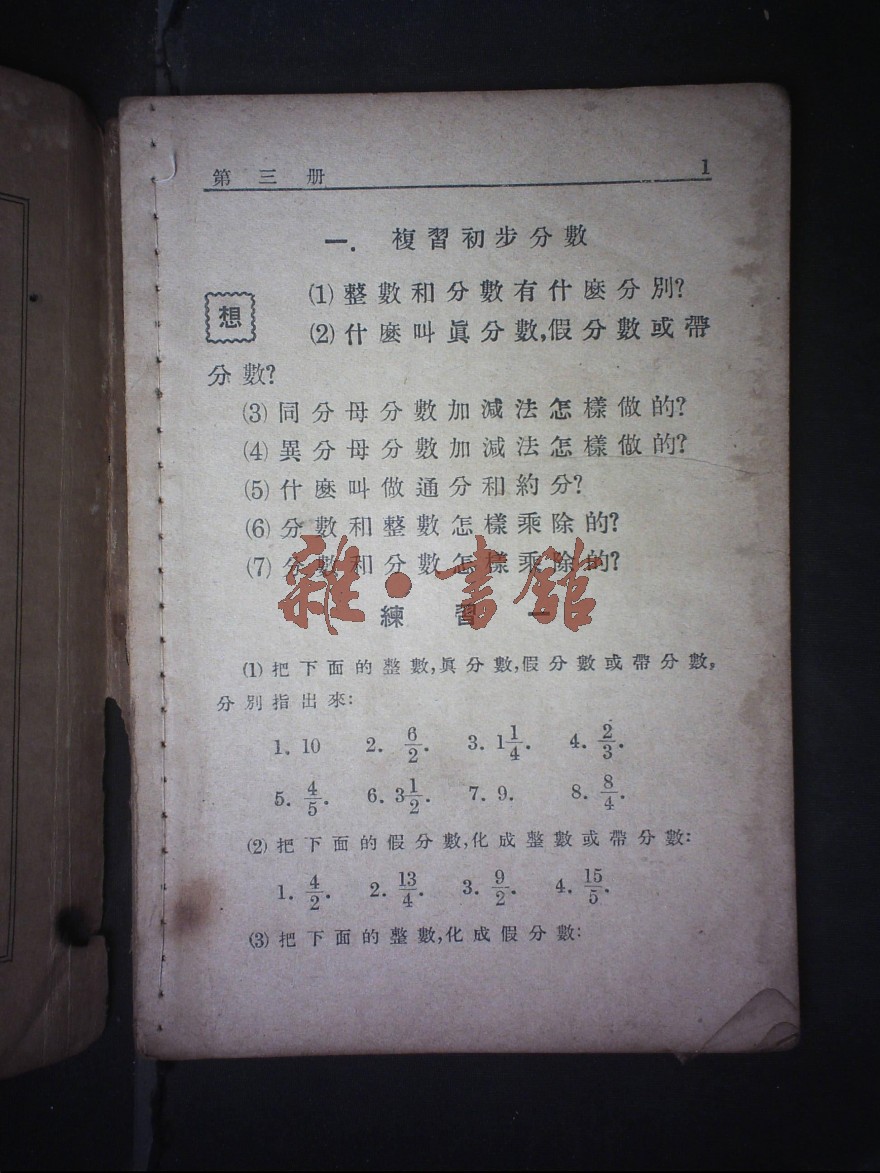 第三册 1
一. 複習初步分數
想 (1)整數和分數有什麽分別?
(2)什麽叫眞分數,假分數或帶
分數?
(3)同分母分數加減法怎樣做的?
(4)異分母分數加減法怎樣做的?
(5)什麽叫做通分和約分?
(6)分數和整數怎樣乘除的?
(7)分數和分數怎樣乘除的?
雜·書館
練習一
(1)把下面的整數,眞分數,假分數或帶分數,
分別指出來:
1. 10 2. 6/2. 3. 1 1/4. 4. 2/3.
5. 4/5. 6. 3 1/2. 7. 9. 8. 8/4.
(2)把下面的假分數,化成整數或帶分數:
1. 4/2. 2. 13/4. 3. 9/2. 4. 15/5.
(3)把下面的整數,化成假分數: